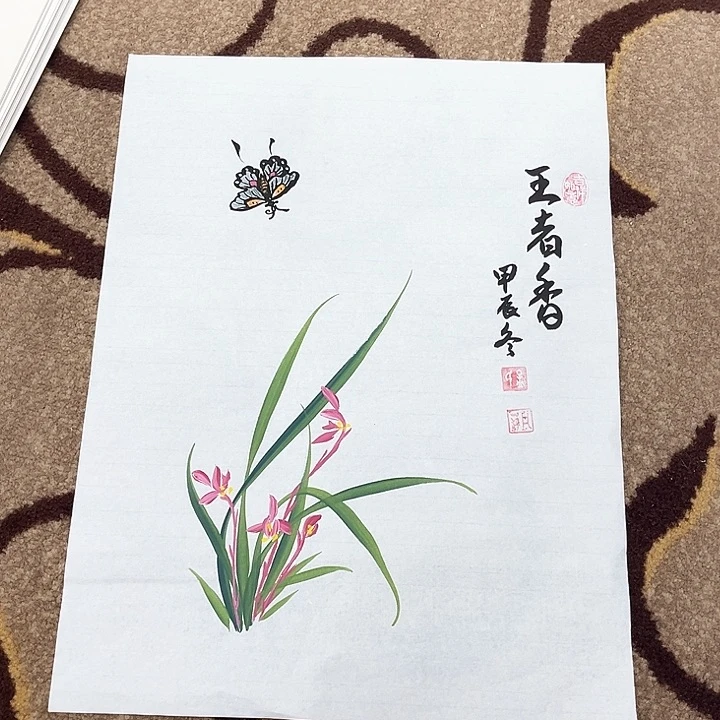 王者香
甲辰冬